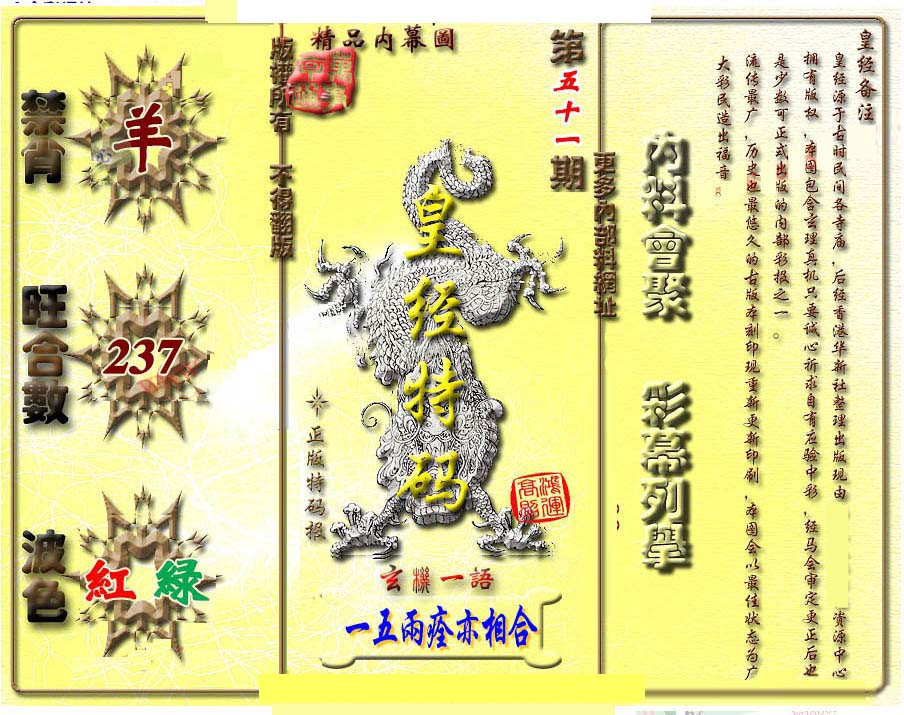 精品内幕圖
版權所有 不得翻版
第五十一期
禁肖
羊
旺合數
237
波色
紅 綠
皇经特码
正版特码报
鴻運高照
玄機一語
一五兩痊亦相合
更多內部料網址
內料會聚
彩幕列舉
皇经备注
皇经源于古时民间各寺庙，后经香港华新社整理出版现由 资源中心
拥有版权，本图包含玄理真机只要诚心祈求自有应验中彩，经马会审定更正后也
是少数可正式出版的内部彩报之一。
流传最广，历史也最悠久的古版本刻印现重新更新印刷，本图会以最佳状态为广
大彩民造出福音